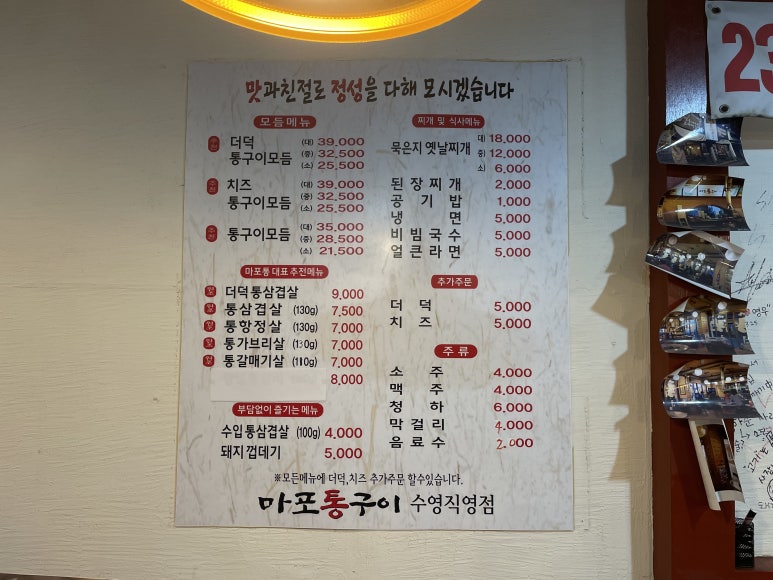 맛과친절로 정성을 다해 모시겠습니다
모듬메뉴
추천 더덕 통구이모듬 (대) 39,000
(중) 32,500
(소) 25,500
추천 치즈 통구이모듬 (대) 39,000
(중) 32,500
(소) 25,500
추천 통구이모듬 (대) 35,000
(중) 28,500
(소) 21,500
마포통 대표 추천메뉴
더덕통삼겹살 9,000
통삼겹살 (130g) 7,500
통항정살 (130g) 7,000
통가브리살 (130g) 7,000
통갈매기살 (110g) 7,000
8,000
부담없이 즐기는 메뉴
수입통삼겹살 (100g) 4,000
돼지껍데기 5,000
찌개 및 식사메뉴
묵은지 옛날찌개 대 18,000
중 12,000
소 6,000
된장찌개 2,000
공기밥 1,000
냉면 5,000
비빔국수 5,000
얼큰라면 5,000
추가주문
더덕 5,000
치즈 5,000
주류
소주 4,000
맥주 4,000
청하 6,000
막걸리 4,000
음료수 2,000
※모든메뉴에 더덕,치즈 추가주문 할수있습니다.
마포통구이 수영직영점
23